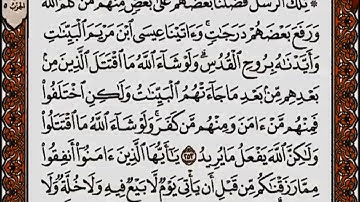 تِلْكَ ٱلرُّسُلُ فَضَّلْنَا بَعْضَهُمْ عَلَىٰ بَعْضٍ مِّنْهُم مَّن كَلَّمَ ٱللَّهُ
وَرَفَعَ بَعْضَهُمْ دَرَجَٰتٍ وَءَاتَيْنَا عِيسَى ٱبْنَ مَرْيَمَ ٱلْبَيِّنَٰتِ
وَأَيَّدْنَٰهُ بِرُوحِ ٱلْقُدُسِ وَلَوْ شَآءَ ٱللَّهُ مَا ٱقْتَتَلَ ٱلَّذِينَ مِنۢ
بَعْدِهِم مِّنۢ بَعْدِ مَا جَآءَتْهُمُ ٱلْبَيِّنَٰتُ وَلَٰكِنِ ٱخْتَلَفُوا۟
فَمِنْهُم مَّنْ ءَامَنَ وَمِنْهُم مَّن كَفَرَ وَلَوْ شَآءَ ٱللَّهُ مَا ٱقْتَتَلُوا۟
وَلَٰكِنَّ ٱللَّهَ يَفْعَلُ مَا يُرِيدُ ٢٥٣ يَٰٓأَيُّهَا ٱلَّذِينَ ءَامَنُوٓا۟ أَنفِقُوا۟
مِمَّا رَزَقْنَٰكُم مِّن قَبْلِ أَن يَأْتِىَ يَوْمٌ لَّا بَيْعٌ فِيهِ وَلَا خُلَّةٌ وَلَا